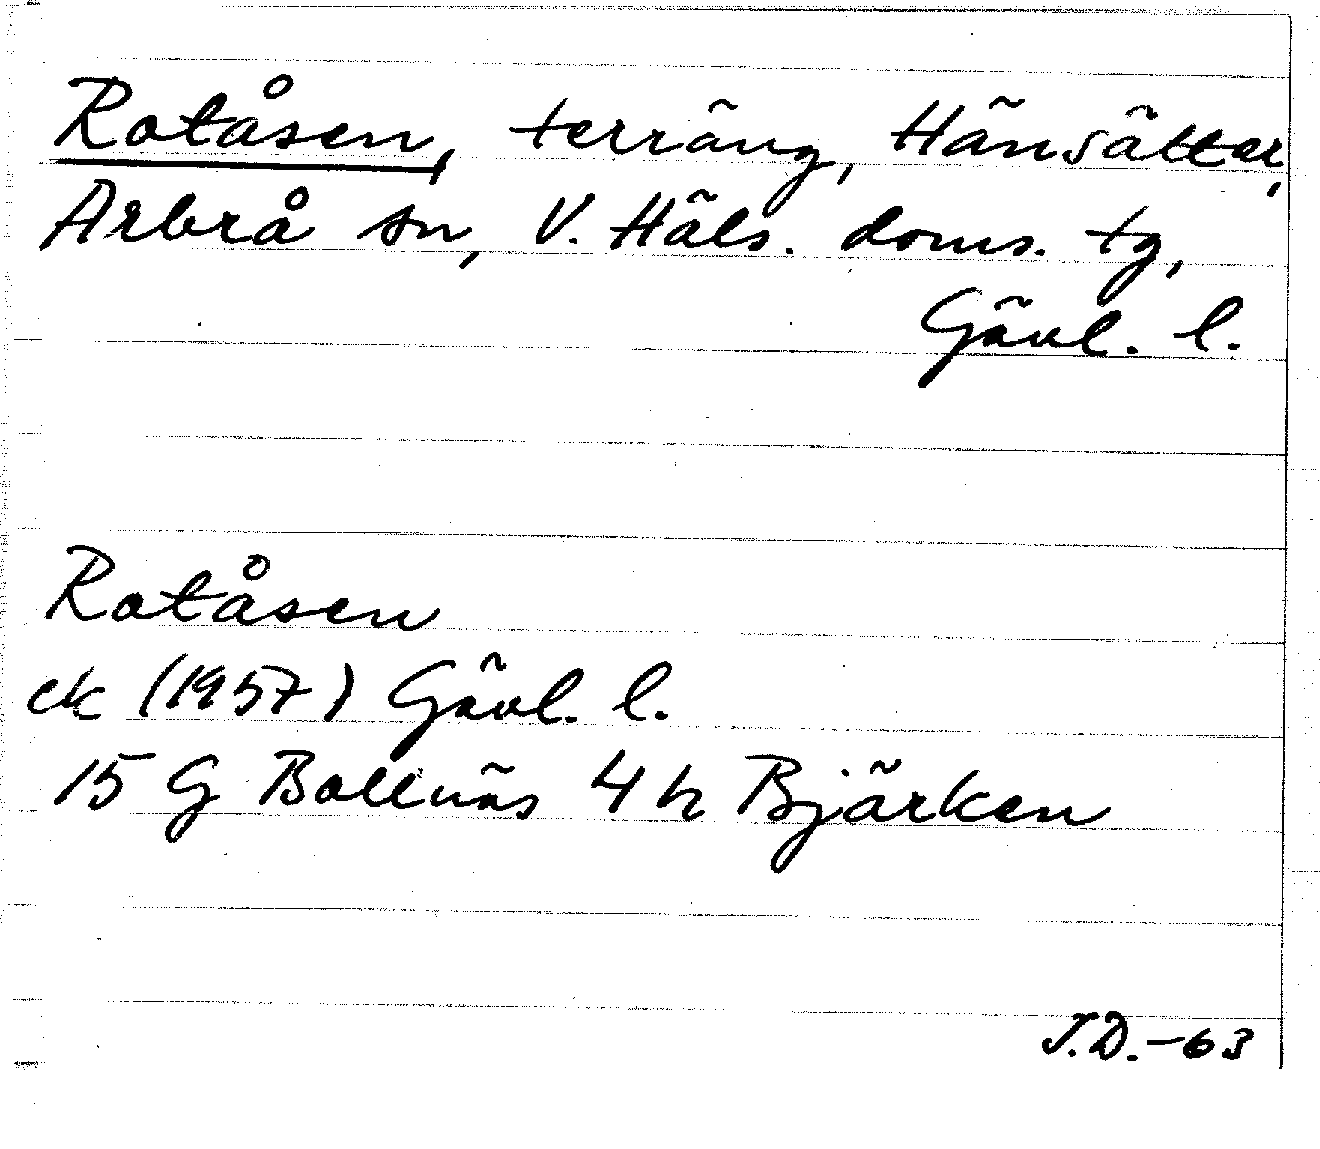 Rotåsen, terräng, Hänsätter,
Arbrå sn, V. Häls. doms. tg,
Gävl. l.
Rotåsen
ek (1957) Gävl. l.
15 G Bollnäs 4 h Bjärken
J.D.-63